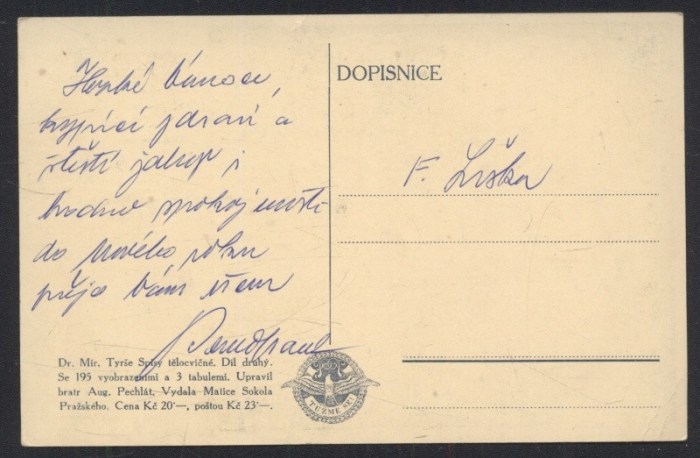 Hezké Vánoce,
kypící zdraví a
štěstí zdar i
hodně spokojenosti
do Nového roku
přeje Vám všem
DOPISNICE
F. Liška
Dr. Mir. Tyrše Spisy tělocvičné. Díl druhý.
Se 195 vyobrazeními a 3 tabulemi. Upravil
bratr Aug. Pechlát, Vydala Matice Sokola
Pražského. Cena Kč 20·—, poštou Kč 23·—.
TUŽME SE